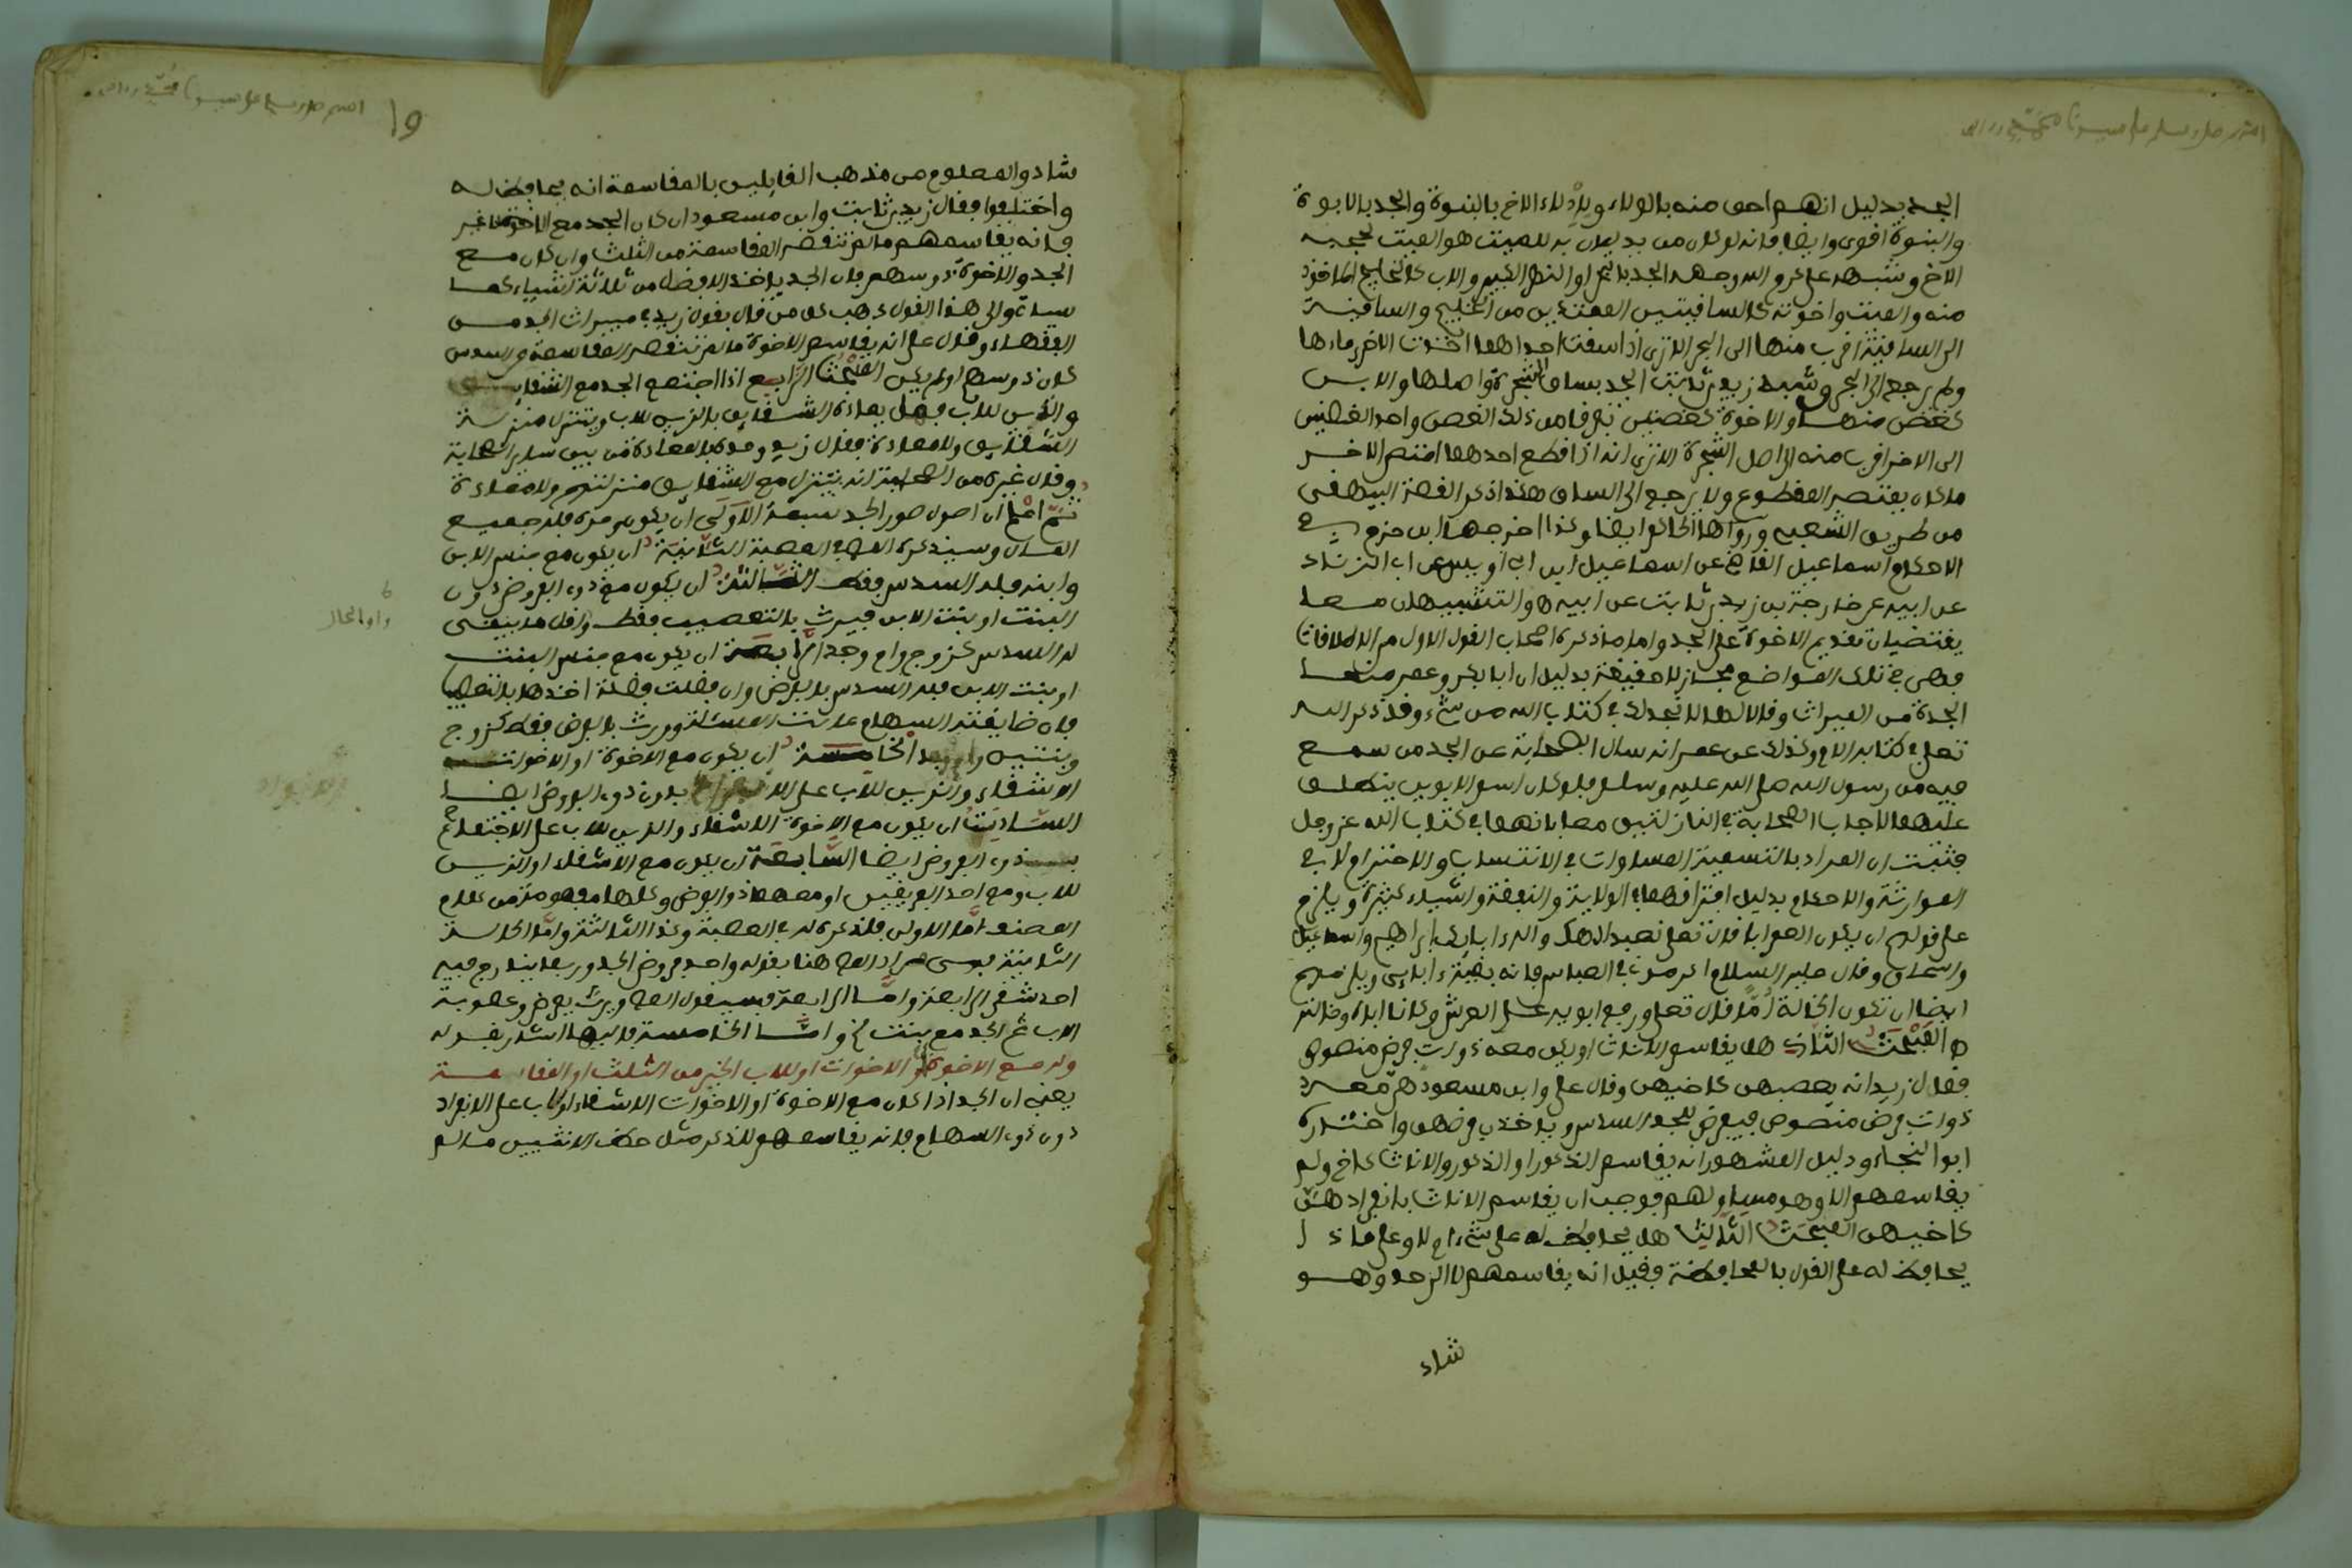 الجد بدليل انهم احق منه بالولاء وبادلاء الاخ بالبنوة والجد بالابوة
والبنوة اقوى وايضا فانه لو كان من يدليان به للميت هو الميت لحجبه
الاخ وشبهه علي كرم الله وجهه الجد بالبحر او النهر الكبير والاب كالخليج الماخوذ
منه والميت واخوته كالساقيتين الممتدتين من الخليج والساقية
الى الساقية اقرب منها الى البحر الا ترى اذا سقت احداهما اخذت الاخرى ماءها
ولم يرجع الى البحر وشبه زيد بن ثابت الجد بساق الشجرة واصلها والاب
كغصن منها والاخوة كغصنين تفرقا من ذلك الغصن واحد الغصنين
الى الاخر اقرب منه الى اصل الشجرة الا ترى انه اذا قطع احدهما امتص الاخر
ما كان يمتص المقطوع ولا يرجع الى الساق هكذا ذكر القصة البيهقي
من طريق الشعبي ورواها الحاكم ايضا وكذا اخرجها ابن حزم في
الاحكام اسماعيل القاضي عن اسماعيل ابن ابي اويس عن ابي الزناد
عن ابيه عن خارجة بن زيد بن ثابت عن ابيه والتشبيهان معا
يقتضيان تقديم الاخوة على الجد واما ما ذكره اصحاب القول الاول من الاطلاقات
فهي في تلك المواضع مجاز لا حقيقة بدليل ان ابا بكر وعمر منعا
الجدة من الميراث وقالا لها لا نجد لك في كتاب الله من شيء وقد ذكر الله
تعلى في كتابه الام وكذلك عن عمر انه سال الصحابة عن الجد من سمع
فيه من رسول الله صلى الله عليه وسلم فلو كان اسم الابوين ينطلق
عليهما لاجاب الصحابة في النازلتين معا بانهما في كتاب الله عز وجل
فثبت ان المراد بالتسمية المساوات في الانتساب والاحترام لا في
الموارثة والاحكام بدليل افتراقهما في الولاية والنفقة واشياء كثيرة ويلزم
على قولهم ان يكون العم ابا قال تعلى نعبد الهك واله ابائك ابراهيم واسماعيل
واسحاق وقال عليه السلام اكرموني في العباس فانه بقية ءابائي ويلزمهم
ايضا ان تكون الخالة أمًّا قال تعلى ورفع ابويه على العرش وكانا اباه وخالته
المبحث الثاني هل يقاسم الاناث او يكن معه ذوات فرض منصوص
فقال زيد انه يعصبهن كاخيهن وقال علي وابن مسعود هن معه
ذوات فرض منصوص فيفرض للجد السدس وياخذن فرضهن واختاره
ابو النجاء ودليل المشهور انه يقاسم الذكور او الذكور والاناث كاخ ولم
يقاسمهم الا وهو مساو لهم فوجب ان يقاسم الاناث بانفرادهن
كاخيهن المبحث الثالث هل يحافظ له على شيء ام لا وعلى ماذا
يحافظ له على القول بالمحافظة فقيل انه يقاسمهم لا الى حد وهو
شاد
19
شاد والمعلوم من مذهب القايلين بالمقاسمة انه يحافظ له
واختلفوا فقال زيد بن ثابت وابن مسعود ان كان الجد مع الاخوة لا غير
فانه يقاسمهم ما لم تنقصه المقاسمة من الثلث وان كان مع
الجد والاخوة ذو سهم فان الجد ياخذ الافضل من ثلاثة اشياء كما
سياتي والى هذا القول ذهب كل من قال بقول زيد في ميراث الجد من
الفقهاء وقال علي انه يقاسم الاخوة ما لم تنقصه المقاسمة من السدس
كان ذو سهم او لم يكن المبحث الرابع اذا اجتمع الجد مع الشقايق
والذين للاب فهل يعاده الشقايق بالذين للاب ويتنزل منزلة
الشقايق ولا معادة فقال زيد وحده بالمعادة من بين ساير الصحابة
وقال غيره من الصحابة انه يتنزل مع الشقايق منزلتهم ولا معادة
ثم اعلم ان اصول صور الجد سبعة الاولى ان يكون وحده فله جميع
المال وسيذكره المص في العصبة الثانية ان يكون مع جنس الابن
وابنه فله السدس فقط الثالثة ان يكون مع ذوي الفروض دون
البنت او بنت الابن فيرث بالتعصيب فقط واقل ما يبقى
له السدس كزوج وام وجد الرابعة ان يكون مع جنس البنت
او بنت الابن فله السدس بالفرض وان فضلت فضلة اخذها بالتعصيب
فان ضايقته السهام عالت المسئلة وورث بالفرض فقط كزوج
وبنتين وام وجد الخامسة ان يكون مع الاخوة او الاخوات
الاشقاء والذين للاب على الانفراد بدون ذوي الفروض ايضا
السادسة ان يكون مع الاخوة الاشقاء والذين للاب على الاجتماع
ذوي الفروض ايضا السابعة ان يكون مع الاشقاء او الذين
للاب ومع احد الفريقين او معهما ذو الفرض وكلها مفهومة من كلام
المصنف امّا الاولى فلذكره له في العصبة وكذا الثالثة وامّا الحالة
الثانية فهي مراد المص هنا بقوله واحد فروض الجد وربما يندرج فيه
احد شقي الرابعة وامّا الرابعة فسيقول المص ويرث بفرض وعصوبة
الاب ثم الجد مع بنت الخ وامّا الخامسة فاليها اشار بقوله
وله مع الاخوة او الاخوات او للاب الخير من الثلث او المقاسمة
يعني ان الجد اذا كان مع الاخوة او الاخوات الاشقاء او للاب على الانفراد
دون ذوي السهام فانه يقاسمهم للذكر مثل حظ الانثيين ما لم
واو الحال